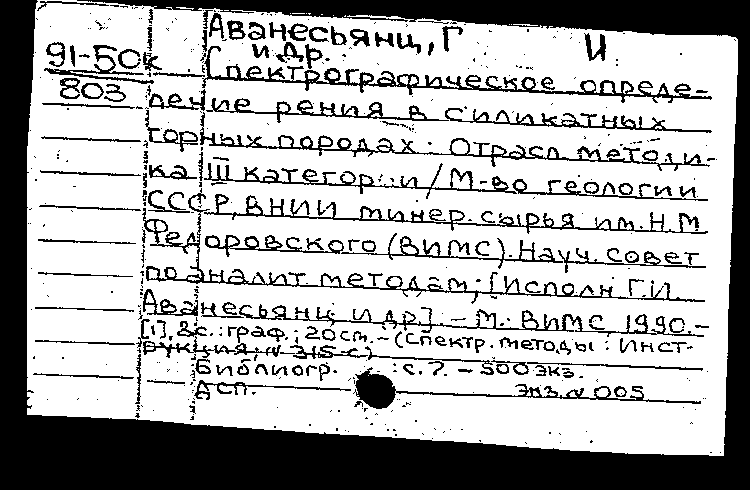 Аванесьянц, Г И
и др.
91-50к
803
Спектрографическое опреде-
ление рения в силикатных
горных породах: Отрасл методи-
ка III категории / М-во геологии
СССР, ВНИИ минер. сырья им. Н.М
Федоровского (ВИМС). Науч. совет
по аналит методам; [Исполн Г.И.
Аванесьянц и др]. - М.: ВИМС, 1990.-
[1], 8с.: граф.; 20см. - (Спектр. методы: Инст-
рукция; N 315-с)
Библиогр. : с. 7. - 500 экз.
ДСП. экз. N 005